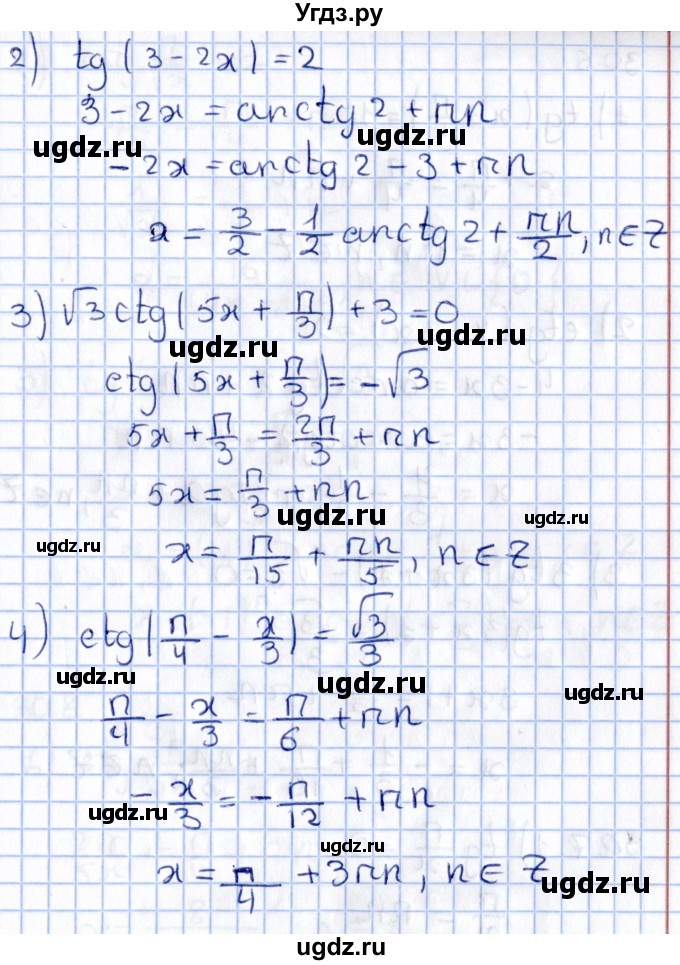 Угдз.ру
2) tg(3-2x)=2
3-2x=arctg2+πn
ugdz.ru ugdz.ru
-2x=arctg2-3+πn
x=3/2-1/2arctg2+πn/2, n∈Z
ugdz.ru
3) √3ctg(5x+π/3)+3=0
ugdz.ru
ctg(5x+π/3)=-√3
5x+π/3=2π/3+πn
ugdz.ru
5x=π/3+πn
ugdz.ru
ugdz.ru ugdz.ru
x=π/15+πn/5, n∈Z
4) ctg(π/4-x/3)=√3/3
ugdz.ru
ugdz.ru ugdz.ru
π/4-x/3=π/6+πn
-x/3=-π/12+πn
ugdz.ru
ugdz.ru
x=π/4+3πn, n∈Z
ugdz.ru
ugdz.ru